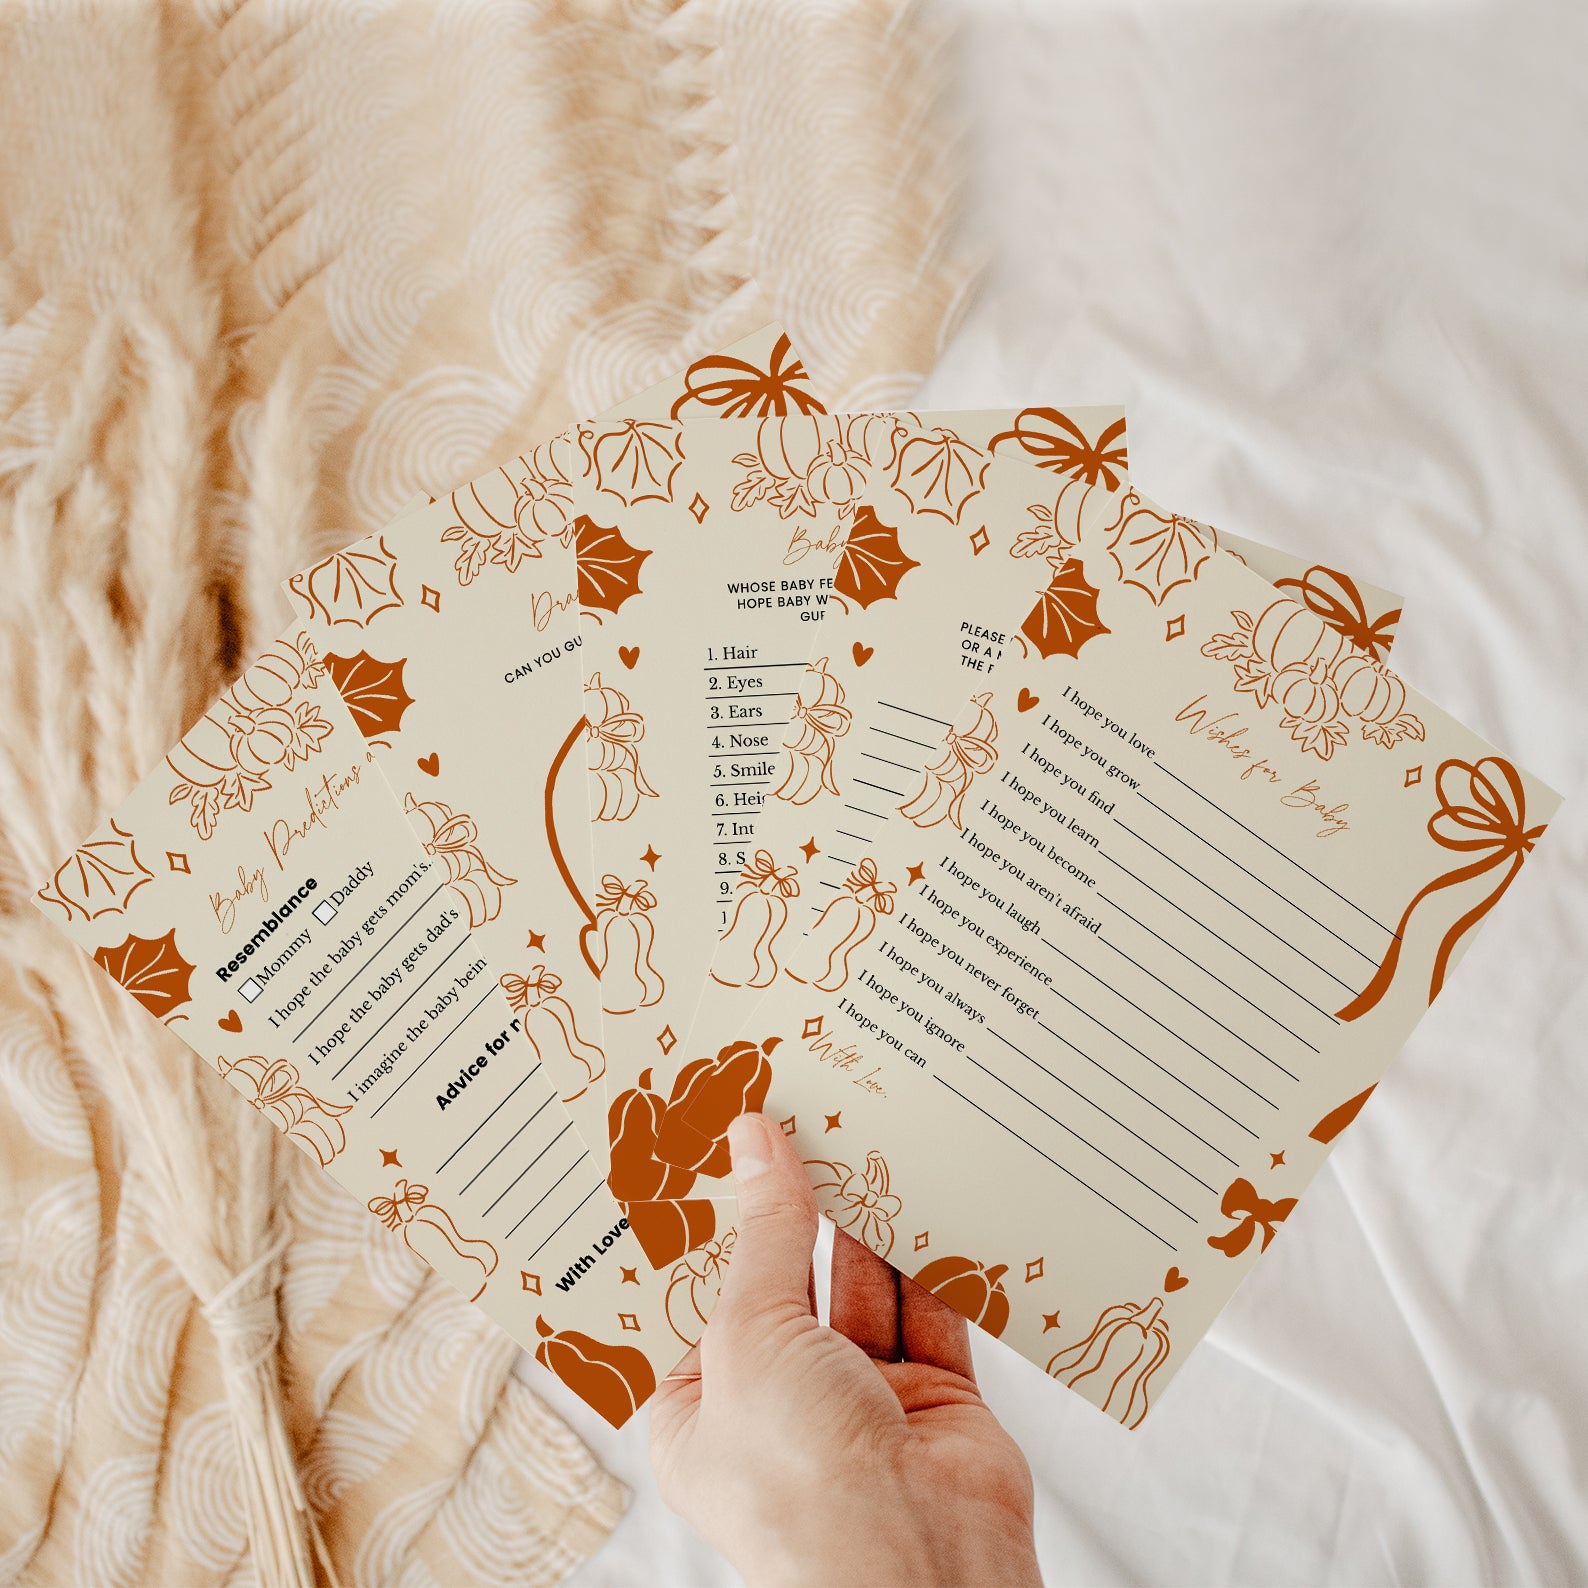 Baby Predictions
Resemblance
Mommy Daddy
I hope the baby gets mom's
I hope the baby gets dad's
I imagine the baby
Advice for
With Love
CAN YOU
Baby
WHOSE BABY
HOPE BABY
1. Hair
2. Eyes
3. Ears
4. Nose
5. Smile
6.
7.
8.
9.
PLEASE
OR A
THE
Wishes for Baby
I hope you love
I hope you grow
I hope you find
I hope you learn
I hope you become
I hope you aren't afraid
I hope you laugh
I hope you experience
I hope you never forget
I hope you always
I hope you ignore
I hope you can
With Love,